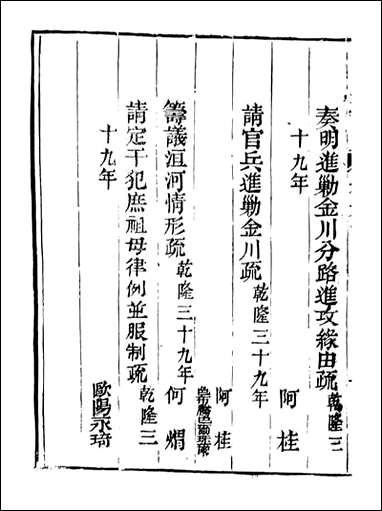 奏明進勦金川分路進攻緣由疏 乾隆三
十九年 阿桂
請官兵進勦金川疏 乾隆三十九年
阿桂
籌議洹河情形疏 乾隆三十九年 何煟
請定干犯庶祖母律例並服制疏 乾隆三
十九年 歐陽永琦